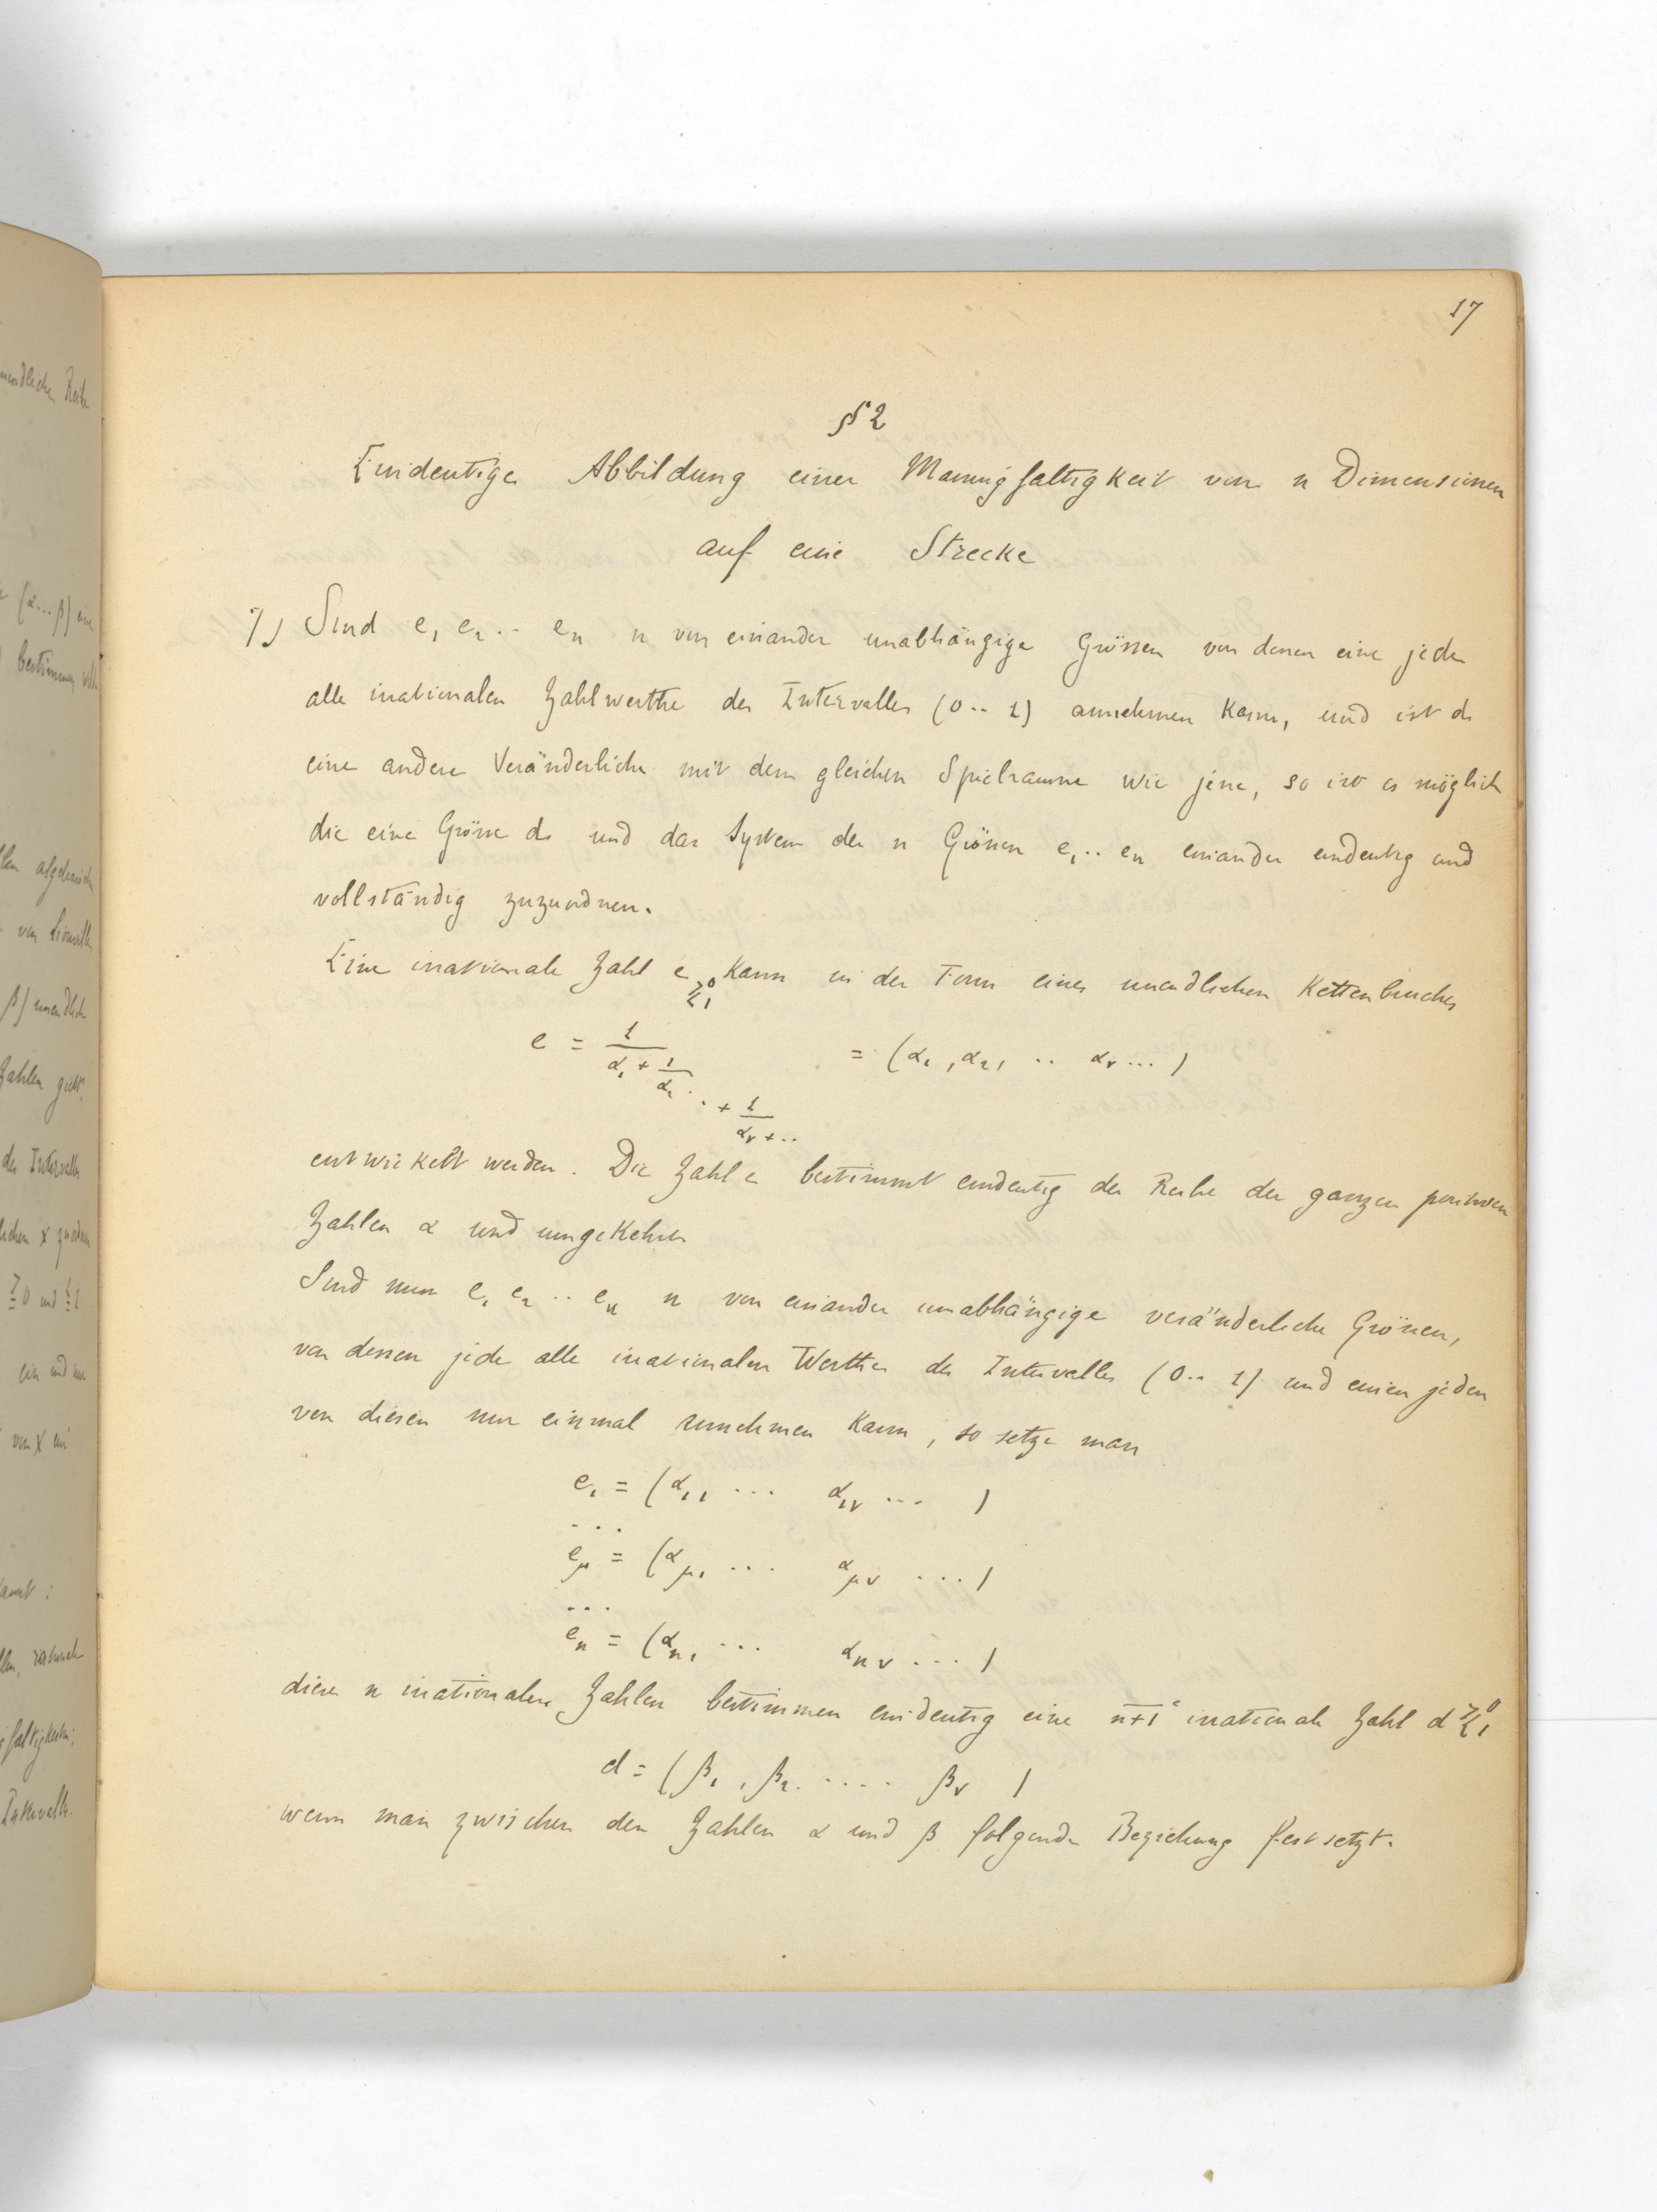 17
§ 2
Eindeutige Abbildung einer Mannigfaltigkeit von n Dimensionen
auf eine Strecke
7) Sind e₁ e₂ .. eₙ n von einander unabhängige Grössen von denen eine jede
alle irrationalen Zahlwerthe des Intervalles (0 .. 1) annehmen kann, und ist d
eine andere Veränderliche mit dem gleichen Spielraume wie jene, so ist es möglich
die eine Grösse d und das System der n Grössen e₁ .. eₙ einander eindeutig und
vollständig zuzuordnen.
Eine irrationale Zahl e >0 <1 kann in der Form eines unendlichen Kettenbruches
e = 1/(α₁ + 1/(α₂ . . + 1/(αᵥ + ..))) = (α₁, α₂, .. αᵥ ...)
entwickelt werden. Die Zahl e bestimmt eindeutig die Reihe der ganzen positiven
Zahlen α und umgekehrt
Sind nun e₁ e₂ .. eₙ n von einander unabhängige veränderliche Grössen,
von dessen jede alle irrationalen Werthe des Intervalles (0 .. 1) und einen jeden
von diesen nur einmal annehmen kann, so setze man
e₁ = (α₁₁ ... α₁ᵥ ... )
...
e_μ = (α_μ₁ ... α_μν ... )
...
eₙ = (αₙ₁ ... αₙᵥ ... )
diese n irrationalen Zahlen bestimmen eindeutig eine n+1ᵉ irrationale Zahl d >0 <1
d = (β₁, β₂ . .... βᵥ )
wenn man zwischen den Zahlen α und β folgende Beziehung festsetzt.